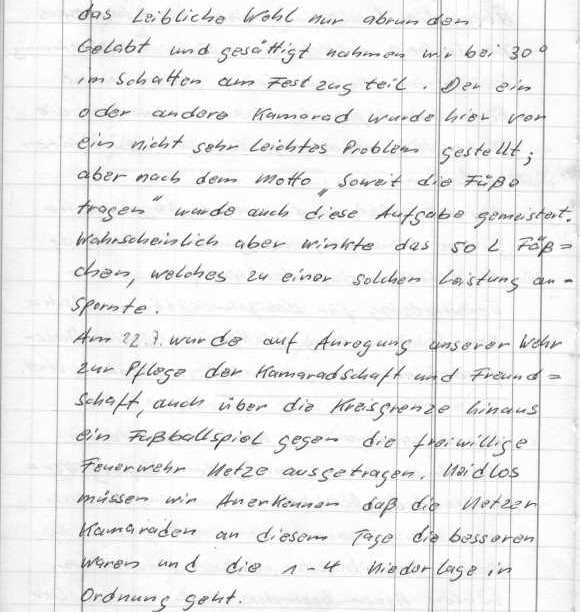 das Leibliche Wohl nur abrunden
Gelabt und gesättigt nahmen wir bei 30°
im Schatten am Festzug teil. Der ein
oder andere Kamerad wurde hier vor
ein nicht sehr leichtes Problem gestellt;
aber nach dem Motto „Soweit die Füße
tragen" wurde auch diese Aufgabe gemeistert.
Wahrscheinlich aber winkte das 50 L Fäß=
chen, welches zu einer solchen Leistung an-
spornte.
Am 22.7. wurde auf Anregung unserer Wehr
zur Pflege der Kameradschaft und Freund=
schaft, auch über die Kreisgrenze hinaus
ein Fußballspiel gegen die freiwillige
Feuerwehr Netze ausgetragen. Neidlos
müssen wir Anerkennen daß die Netzer
Kameraden an diesem Tage die besseren
waren und die 1-4 Niederlage in
Ordnung geht.